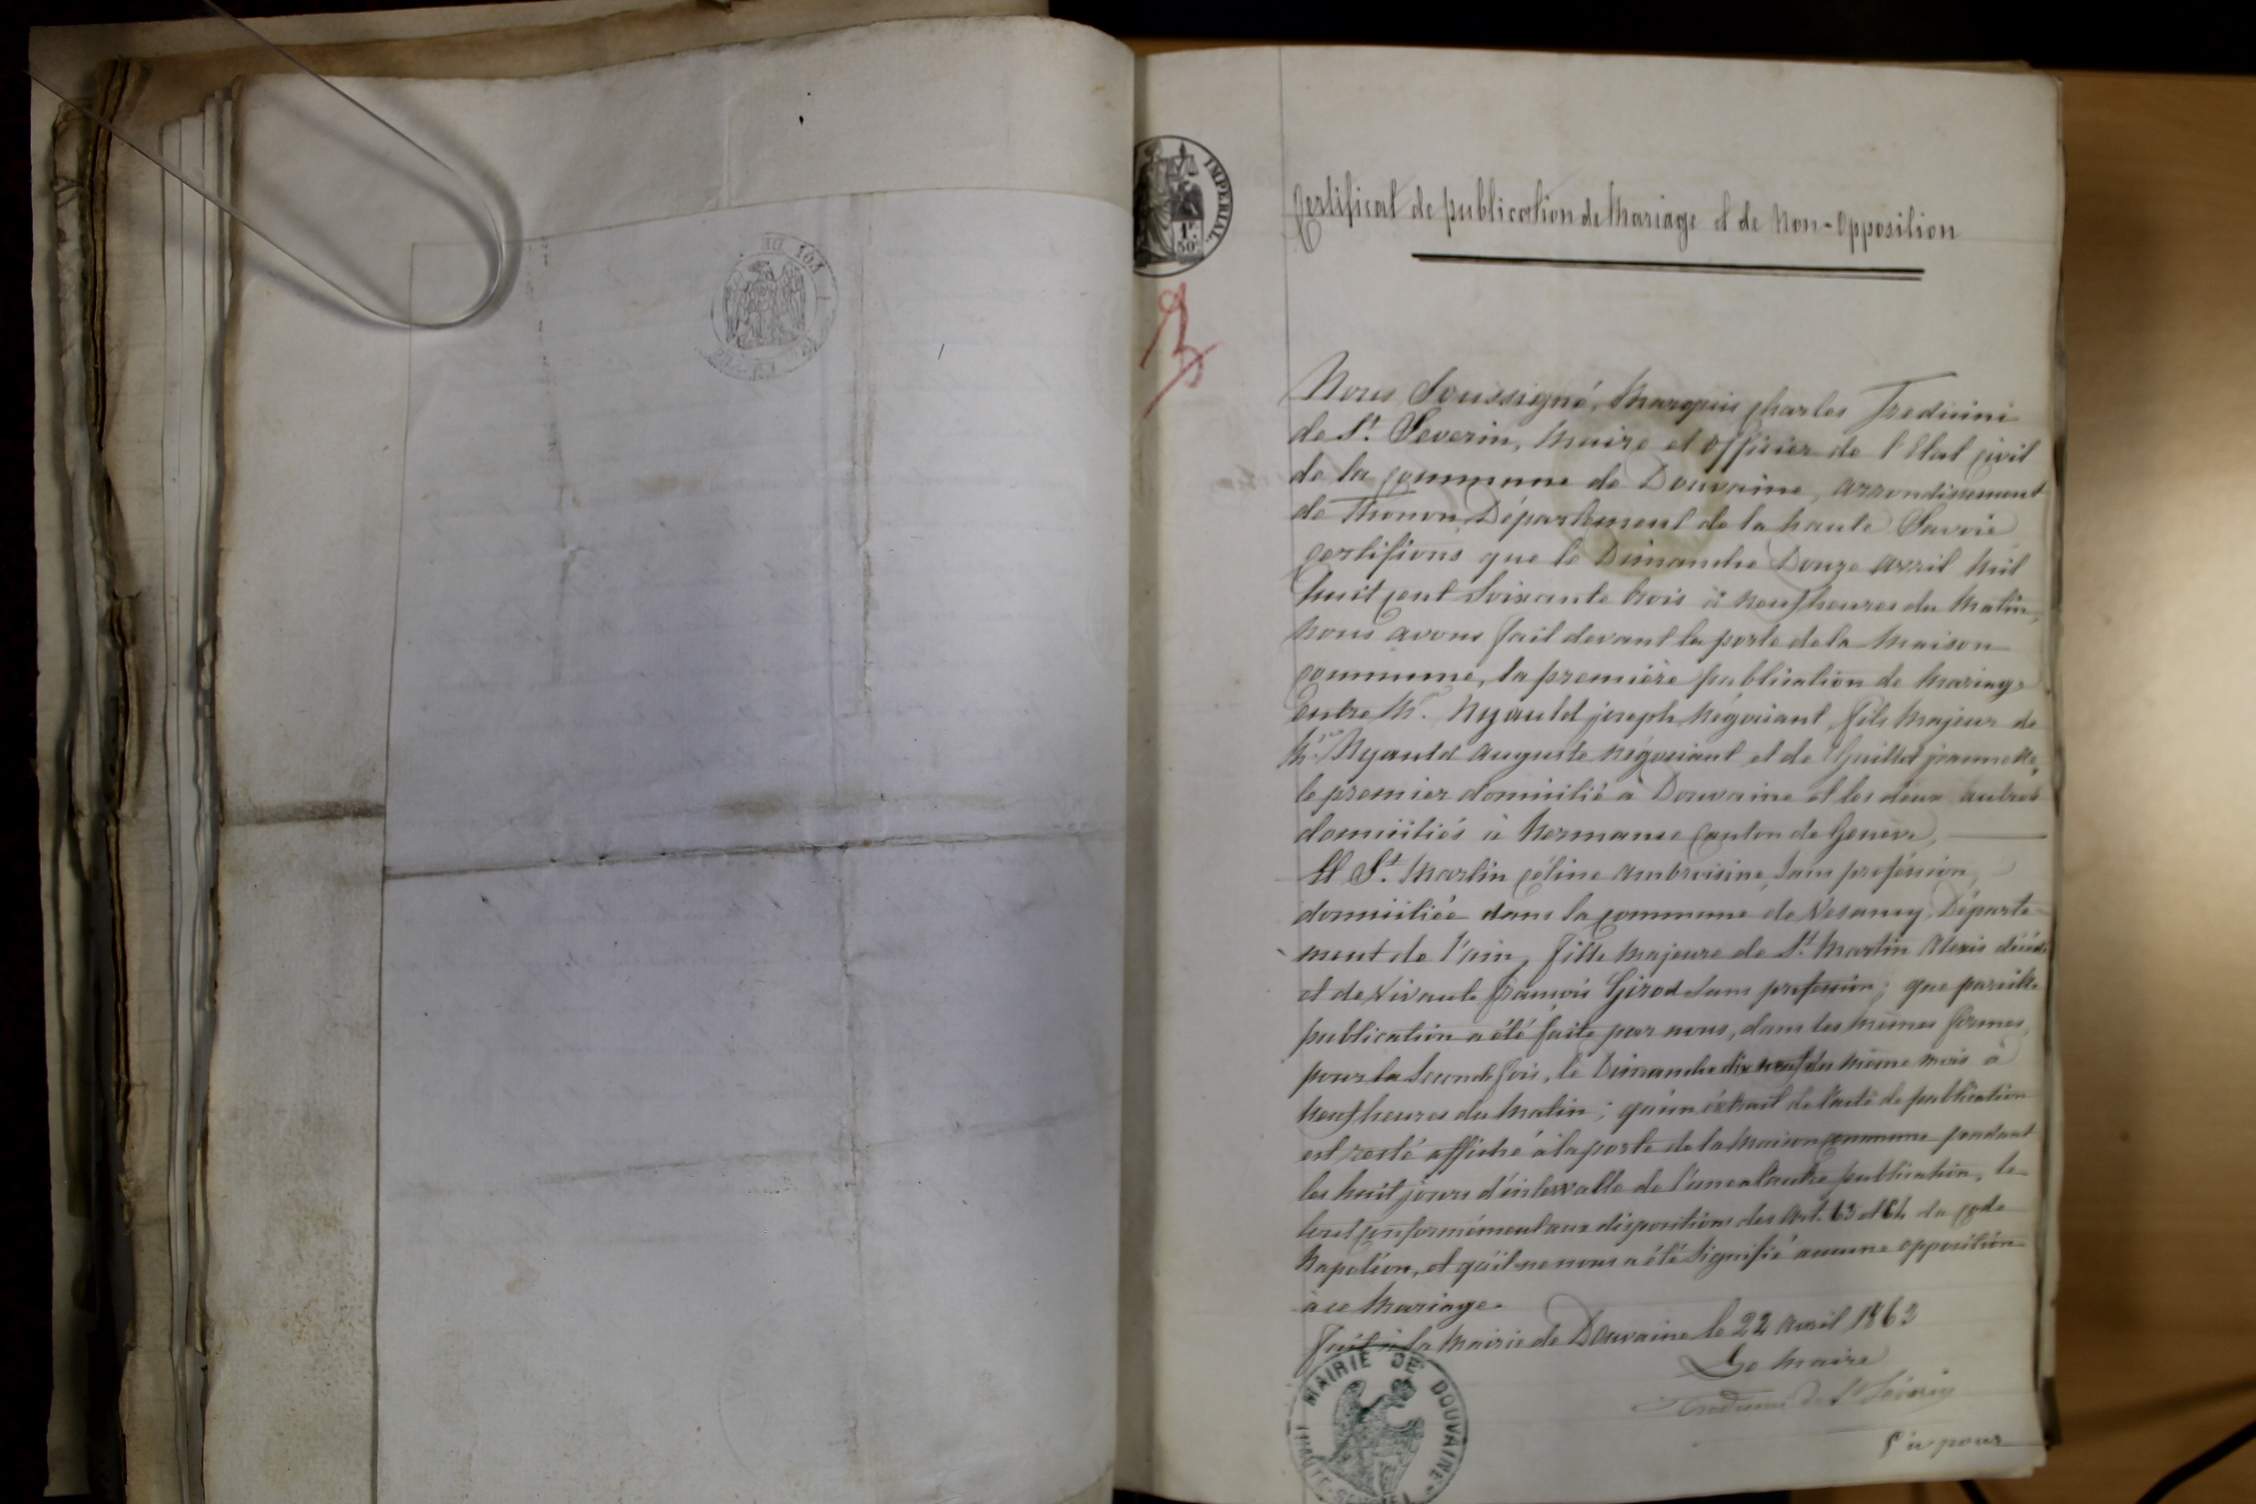 IMPERIAL.
1F
50c
Certificat de publication de Mariage et de Non-Opposition
Nous Soussigné, Marquis charles Tredicini
de St. Severin, Maire et officier de l'Etat civil
de la commune de Douvaine, arrondissement
de Thonon, Département de la haute Savoie
certifions que le Dimanche Douze avril Mil
huit cent Soixante trois à Neuf heures du Matin,
Nous avons fait devant la porte de la Maison
commune, la première publication de Mariage
Entre Mr. Nyauld joseph Négociant, fils Majeur de
Mr. Nyauld Auguste Négociant et de Guillot jeannette,
le premier domicilié à Douvaine et les deux autres
domiciliés à hermance Canton de Genève,
Et St. Martin céline Ambroisine, Sans profession,
domiciliée dans la commune de Vesancy, Départe-
ment de l'ain, fille Majeure de St. Martin Alexis décédé
et de Vivante françois Girod Sans profession; que pareille
publication a été faite par nous, dans les Mêmes formes,
pour la Seconde fois, le Dimanche dix neuf du Même Mois à
Neuf heures du Matin; qu'un extrait de l'acte de publication
est resté affiché à la porte de la Maison commune pendant
les huit jours d'intervalle de l'une à l'autre publication, le
tout conformément aux dispositions des Art. 63 et 64 du code
Napoléon, et qu'il ne nous a été Signifié aucune opposition
à ce Mariage.
Fait à la Mairie de Douvaine le 22 Avril 1863
Le Maire
Tredicini de St Séverin
MAIRIE DE DOUVAINE
pour